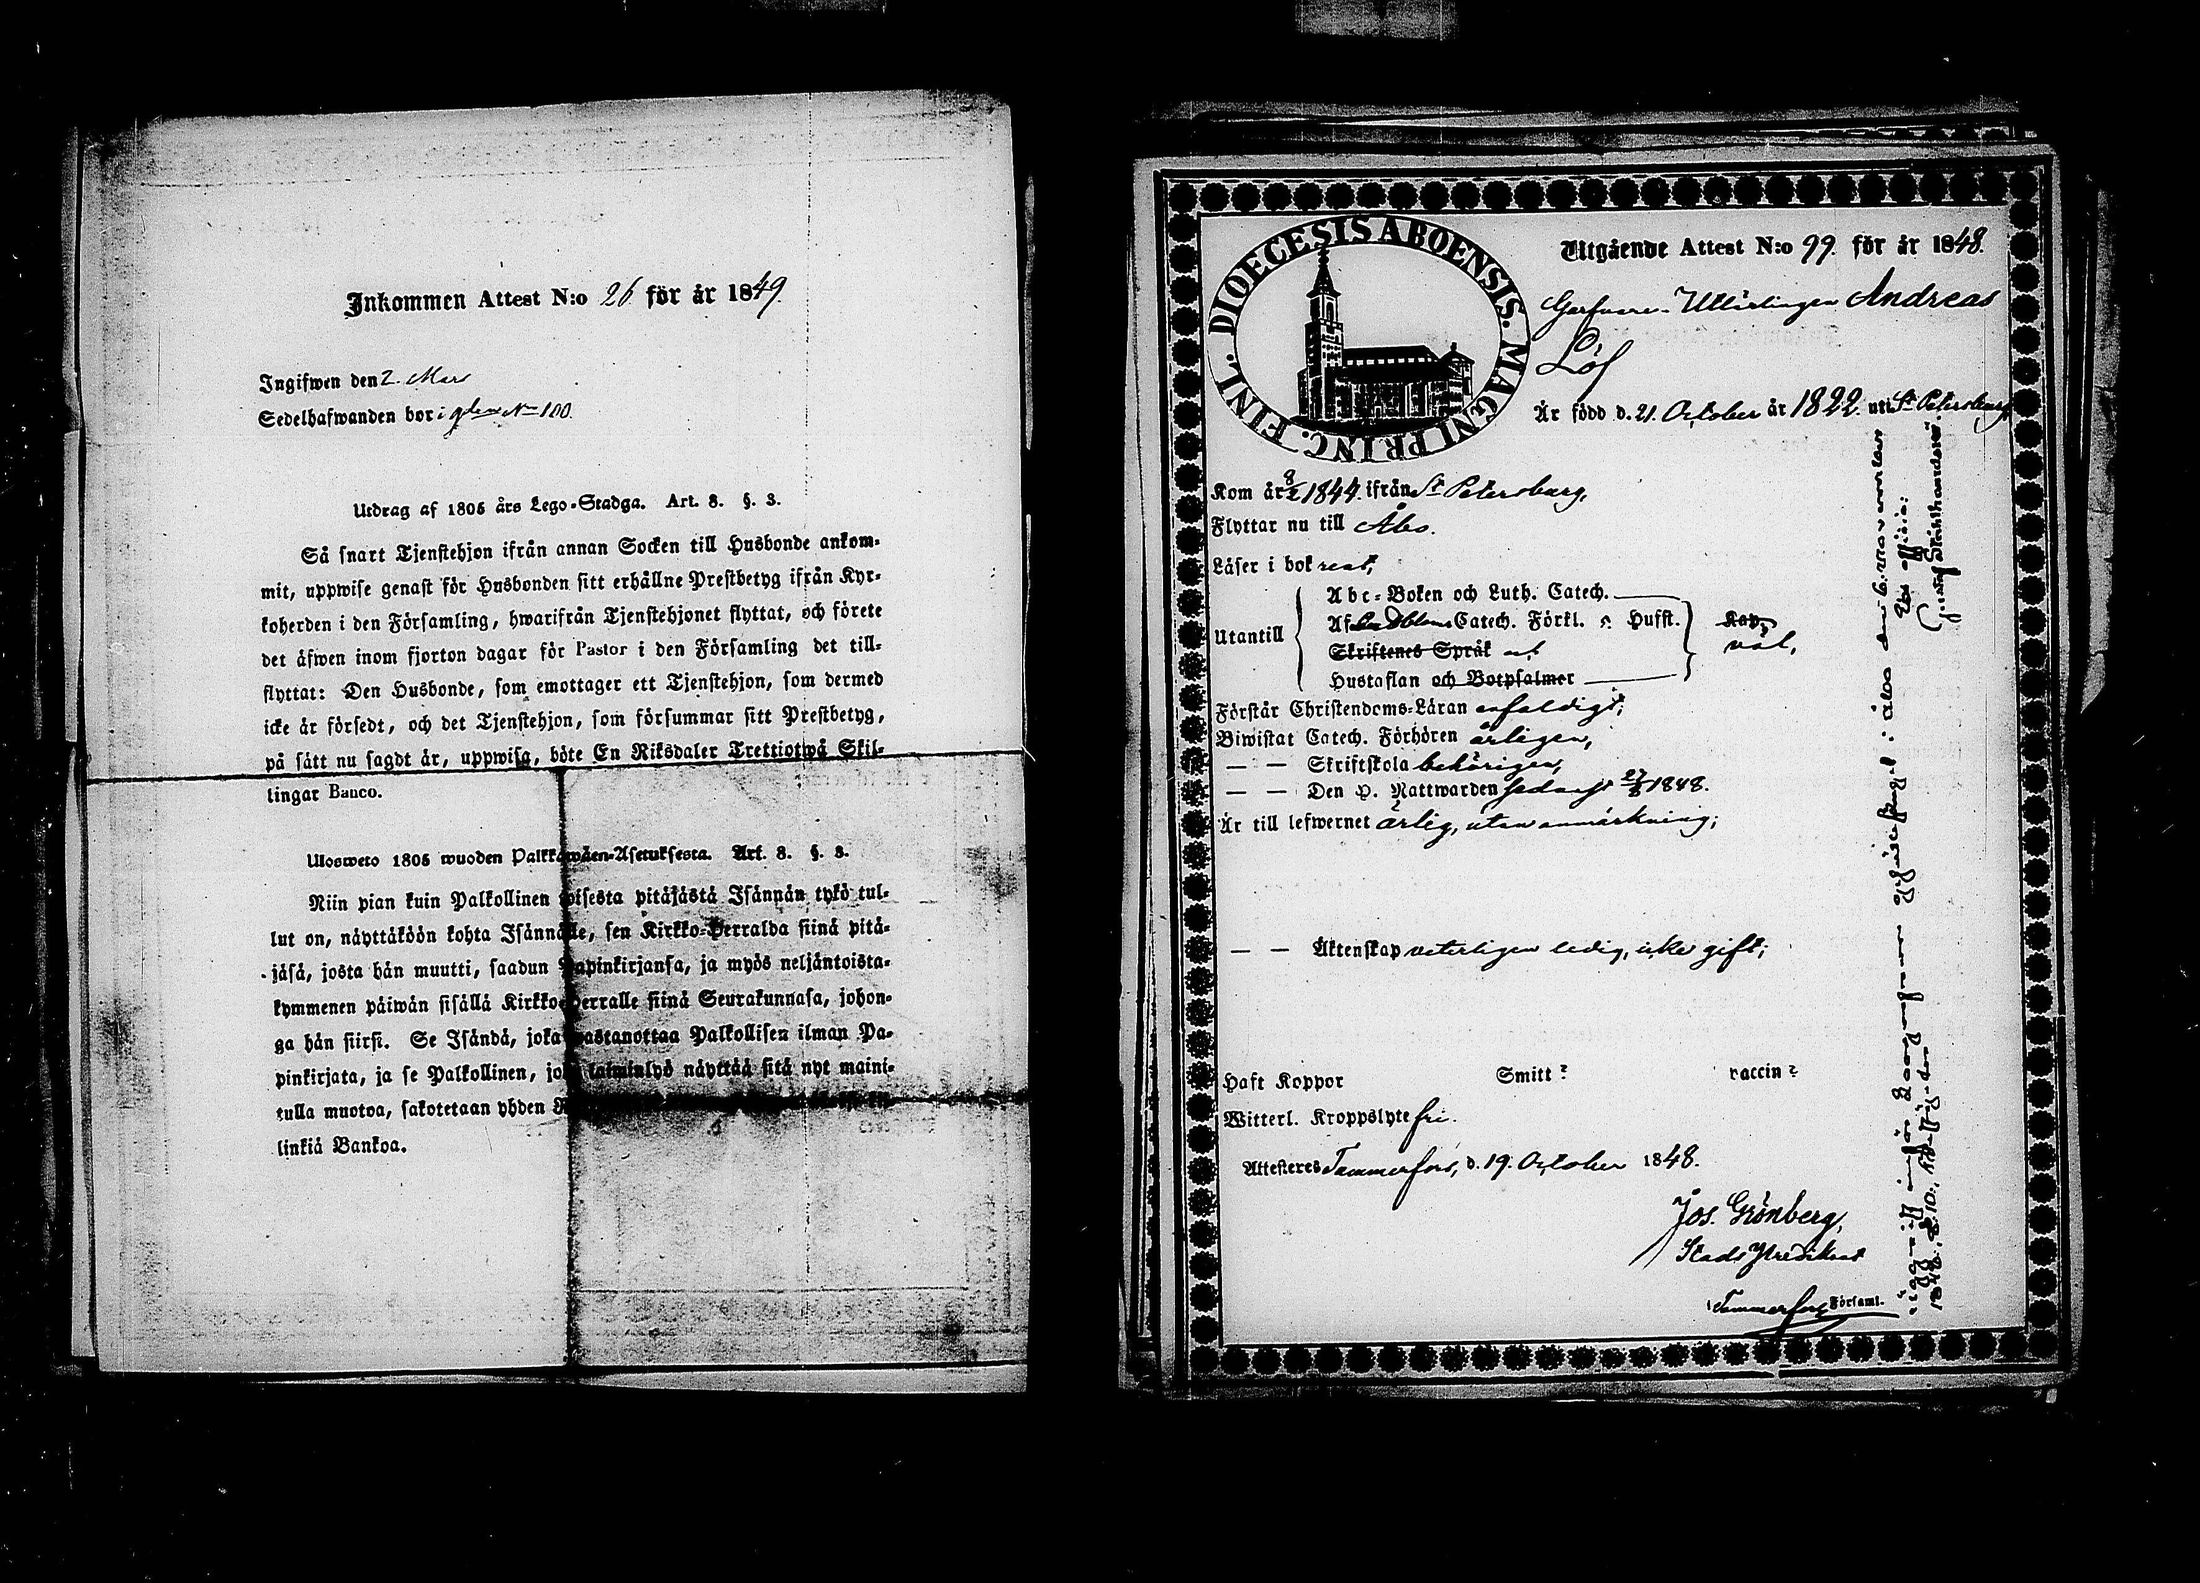 Inkommen Attest N:o 26 för år 1849
Ingifwen den 2. Mars
Sedelhafwanden bor i qdern No 100.
Utdrag af 1805 års Lego-Stadga. Art. 8. §. 3.
Så snart Tjenstehjon ifrån annan Socken till Husbonde ankom-
mit, uppwise genast för Husbonden sitt erhållne Prestbetyg ifrån Kyr-
koherden i den Församling, hwarifrån Tjenstehjonet flyttat, och förete
det äfwen inom fjorton dagar för Pastor i den Församling det till-
flyttat: Den Husbonde, som emottager ett Tjenstehjon, som dermed
icke är försedt, och det Tjenstehjon, som försummar sitt Prestbetyg,
på sätt nu sagdt är, uppwisa, böte En Riksdaler Trettiotwå Skil-
lingar Banco.
Ulosweto 1805 wuoden Palkkawäen-Asetuksesta. Art. 8. §. 3.
Niin pian kuin Palkollinen toisesta pitäjästä Isännän tykö tul-
lut on, näyttäköön kohta Isännälle, sen Kirkko-Herralda siinä pitä-
jäsä, josta hän muutti, saadun Papinkirjansa, ja myös neljäntoista-
kymmenen päiwän sisällä Kirkko-Herralle siinä Seurakunnasa, johon-
ga hän siirsi. Se Isändä, joka wastanottaa Palkollisen ilman Pa-
pinkirjata, ja se Palkollinen, joka laiminlyö näyttää sitä nyt maini-
tulla muotoa, sakotetaan yhden
linkiä Bankoa.
DIOECESIS ABOENSIS. MAGNI PRINC. FINL.
Utgående Attest N:o 99. för år 1848.
Garfvare-Utlärlingen Andreas
Löf
Är född d. 21. October år 1822. uti St Petersburg
Kom år 8/2 1844. ifrån St Petersburg,
Flyttar nu till Åbo.
Läser i bok rent,
Utantill
Abc-Boken och Luth. Catech.
Af Catech. Förkl. o Husst.
Skriftenes Språk
Hustaflan och Botpsalmer
väl,
Förstår Christendoms-Läran enfaldigt;
Biwistat Catech. Förhören årligen,
— — Skriftskola behörigen,
— — Den H. Nattwarden sednast 27/8 1848.
Är till lefwernet ärlig, utan anmärkning;
— — Äktenskap veterligen ledig, icke gift;
Haft Koppor Smitt? vaccin?
Witterl. Kroppslyte fri.
Attesteres Tammerfors, d. 19. October 1848.
Jos. Grönberg,
Stads Predikant
i Tammerfors Församl.